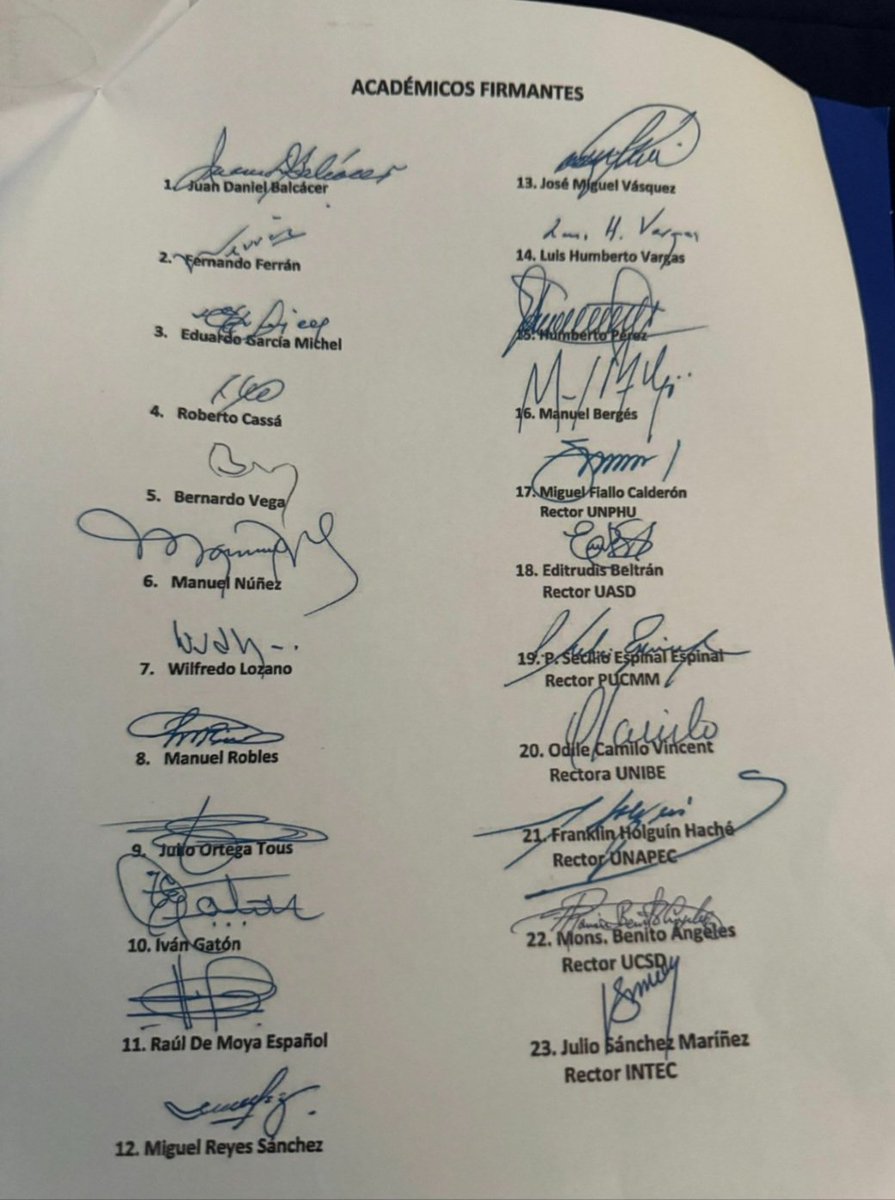 ACADÉMICOS FIRMANTES
1. Juan Daniel Balcácer
2. Fernando Ferrán
3. Eduardo García Michel
4. Roberto Cassá
5. Bernardo Vega
6. Manuel Núñez
7. Wilfredo Lozano
8. Manuel Robles
9. Julio Ortega Tous
10. Iván Gatón
11. Raúl De Moya Español
12. Miguel Reyes Sánchez
13. José Miguel Vásquez
Luis H. Vargas
14. Luis Humberto Vargas
15. Humberto Pérez
16. Manuel Bergés
17. Miguel Fiallo Calderón
Rector UNPHU
18. Editrudis Beltrán
Rector UASD
19. P. Secilio Espinal Espinal
Rector PUCMM
20. Odile Camilo Vincent
Rectora UNIBE
21. Franklin Holguín Haché
Rector UNAPEC
22. Mons. Benito Ángeles
Rector UCSD
23. Julio Sánchez Maríñez
Rector INTEC